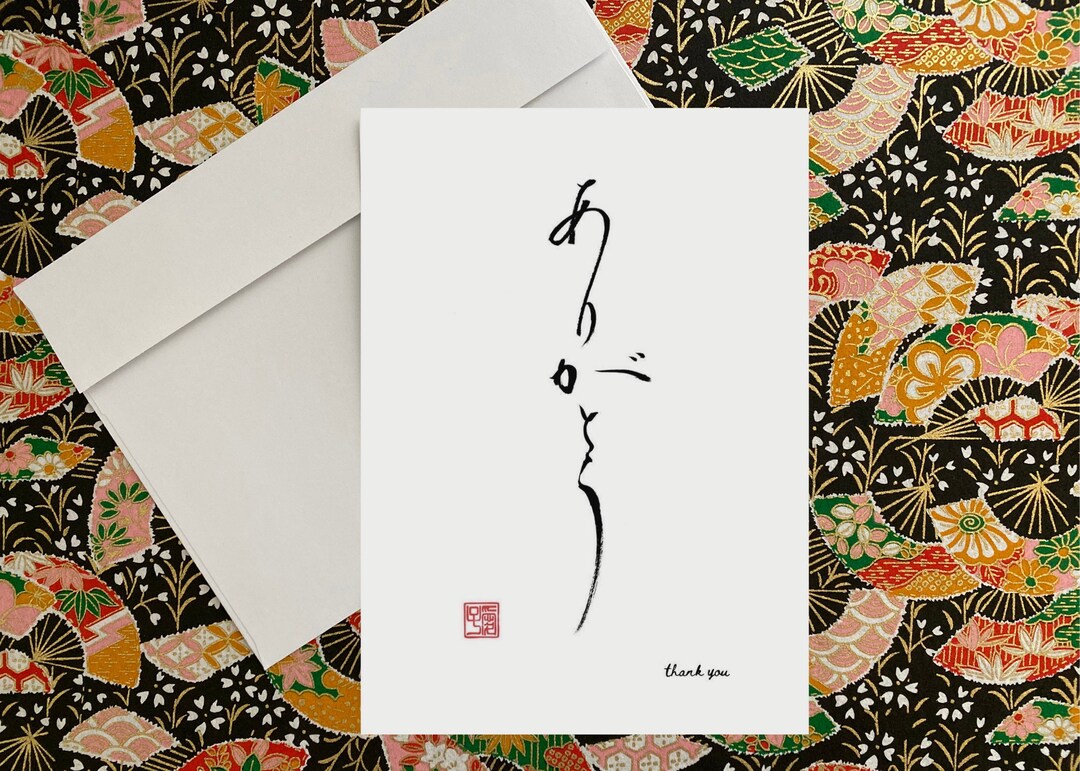 ありがとう
thank you